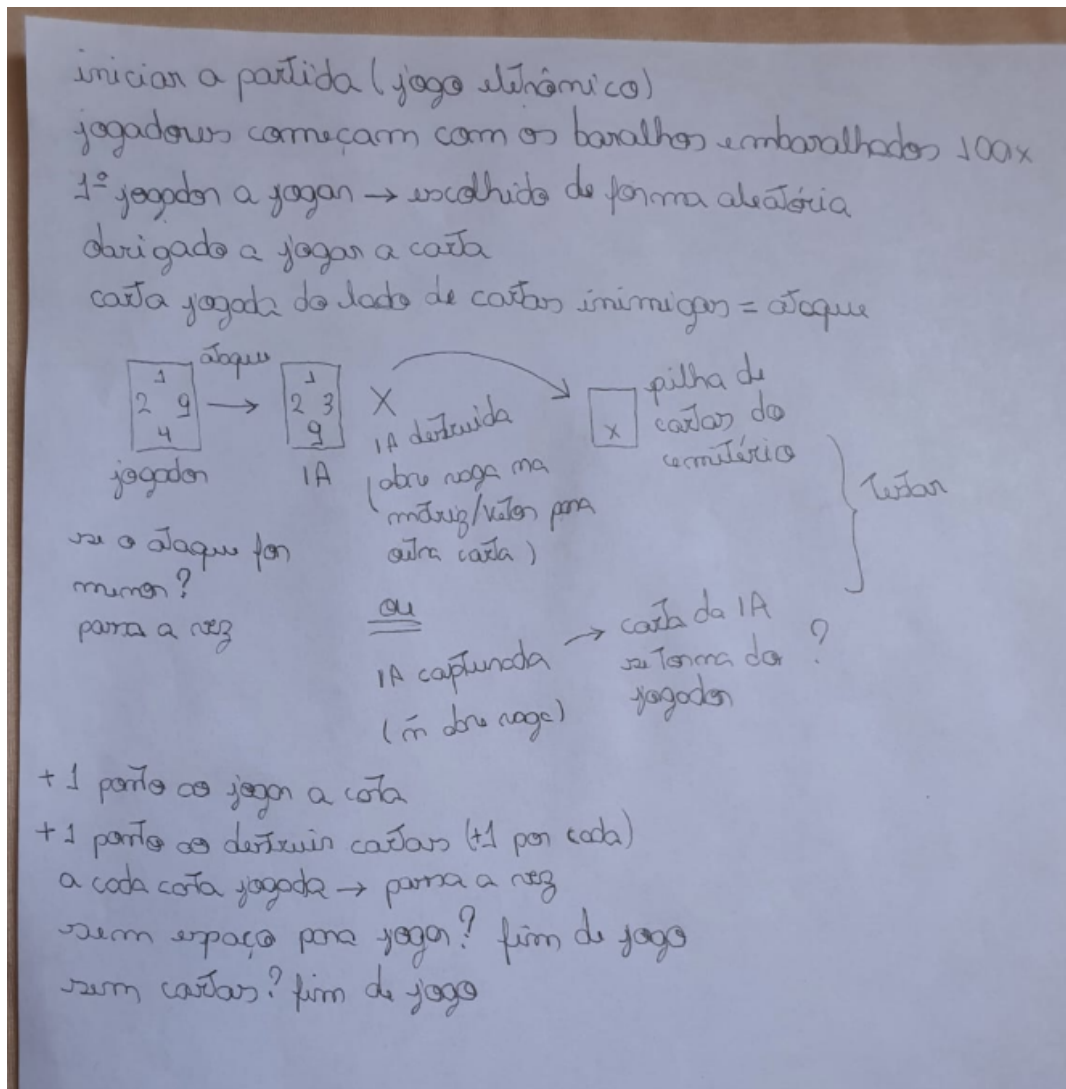 iniciar a partida (jogo eletrônico)
jogadores começam com os baralhos embaralhados 100x
1º jogador a jogar → escolhido de forma aleatória
obrigado a jogar a carta
carta jogada do lado de cartas inimigas = ataque
ataque
1
2 9 →
4
jogador
1
2 3
9
IA
X
IA destruída
(abre vaga na
matriz/vetor para
outra carta)
X
pilha de
cartas do
cemitério
testar
se o ataque for
menor?
passa a vez
ou
IA capturada
(ñ abre vaga)
→ carta da IA
se torna do ?
jogador
+1 ponto ao jogar a carta
+1 ponto ao destruir cartas (+1 por cada)
a cada carta jogada → passa a vez
sem espaço para jogar? fim de jogo
sem cartas? fim de jogo